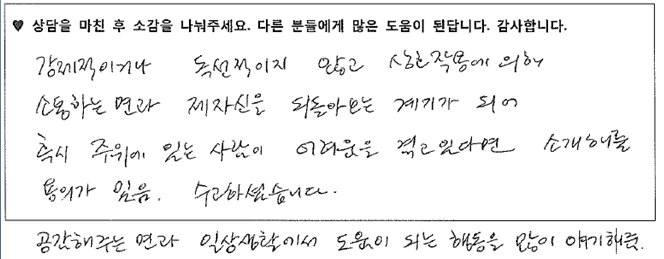 ♥ 상담을 마친 후 소감을 나눠주세요. 다른 분들에게 많은 도움이 된답니다. 감사합니다.
강제적이거나 독선적이지 않고 상호작용에 의해
소통하는 면과 제자신을 되돌아보는 계기가 되어
혹시 주위에 있는 사람이 어려움을 겪고있다면 소개해줄
용의가 있음. 수고하셨습니다.
공감해주는 면과 일상생활에서 도움이 되는 행동을 많이 얘기해줌.